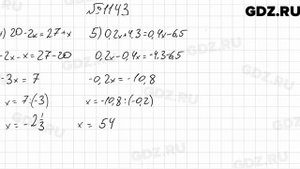 GDZ.RU
№1143
) 20-2x=27+x
-2x-x=27-20
-3x=7
x=7:(-3)
x=-2 1/3
5) 0,2x+4,3=0,4x-6,5
0,2x-0,4x=-4,3-6,5
-0,2x=-10,8
x=-10,8:(-0,2)
x=54
GDZ.RU